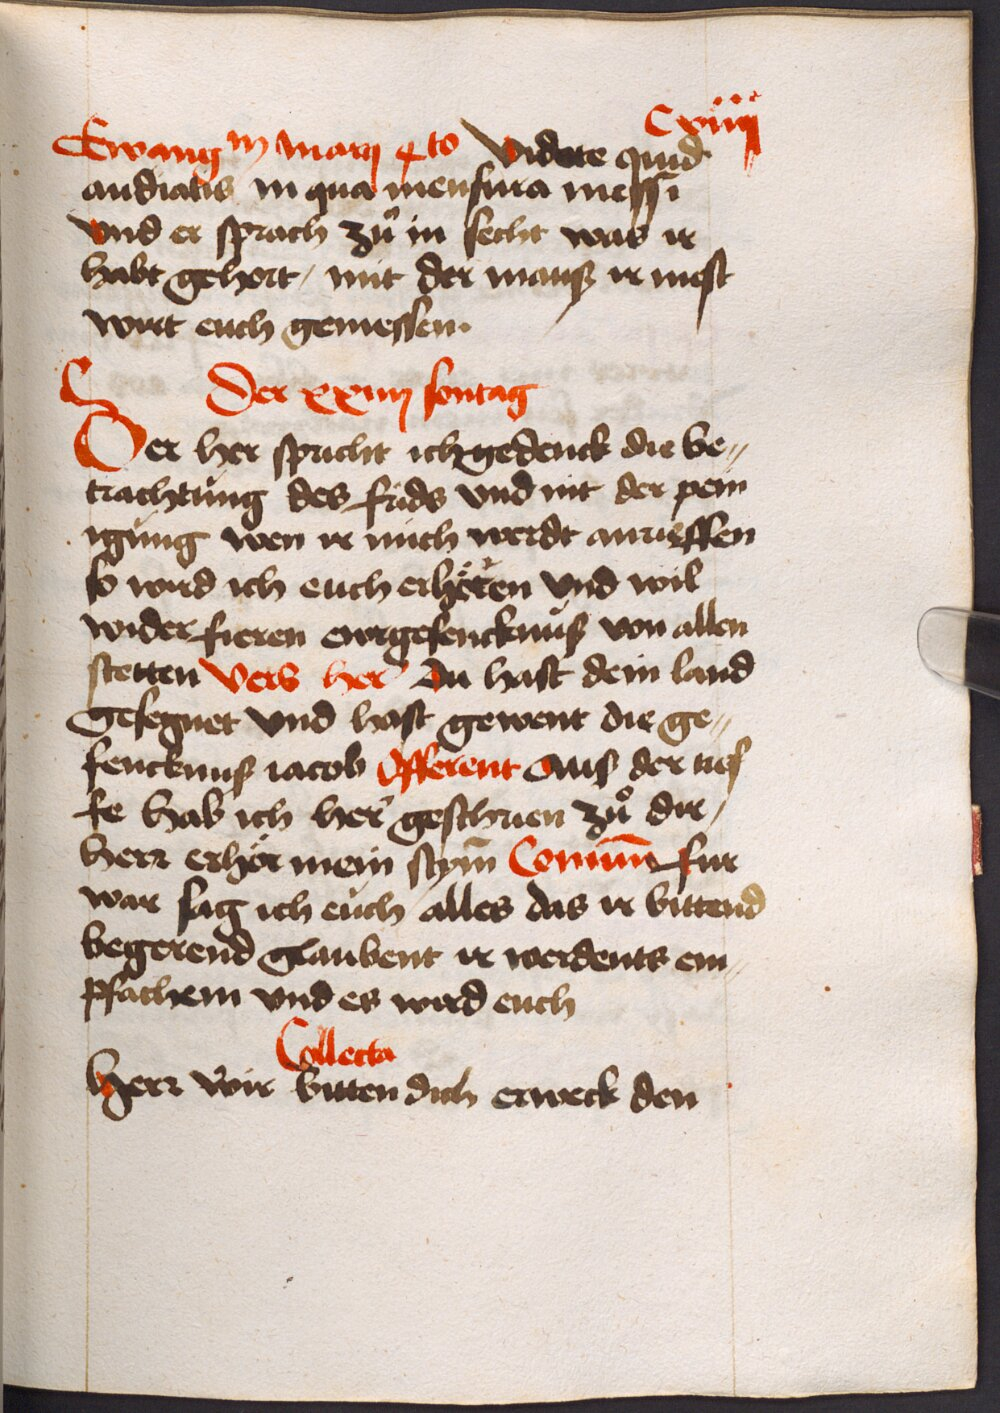 Cxiiij
Ewang in Marcj 4to Videte quid
audiatis in qua mensura messi
vnd er sprach zů in secht was ir
habt gehort / mit der mauß ir mest
wirt euch gemessen.
Der xxiiij sontag
Der her spricht ich gedenck die be„
trachtung des frids vnd nit der pein
igung wen ir mich werdt anrueffen
so wird ich euch erhören vnd wil
widerfieren ewrgefencknuß von allen
stetten Vers her Du hast dein land
Gesegnet vnd hast gewent die ge„
fencknuß iacob Offerent Auß der tief
fe hab ich her geschrien zů dir /
herr erhör mein stym̄ Comun̄ fur
war sag ich euch alles das ir bittend
begerend glaubent ir werdents em„
pfachenn vnd es wird euch
Collecta
Herr wir bitten dich erweck den